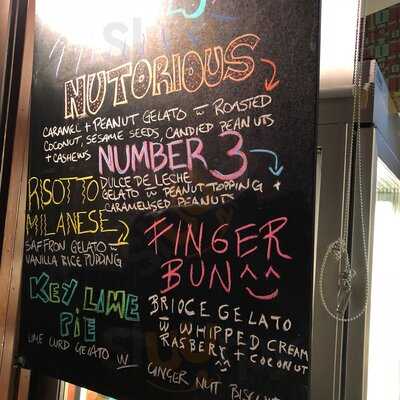 NUTORIOUS
CARAMEL + PEANUT GELATO W ROASTED
COCONUT, SESAME SEEDS, CANDIED PEANUTS
+ CASHEWS
NUMBER 3
DULCE DE LECHE
GELATO W PEANUT TOPPING +
CARAMELISED PEANUTS
RISOTTO
MILANESE
SAFFRON GELATO W
VANILLA RICE PUDDING
FINGER
BUN ^^
BRIOCE GELATO
W WHIPPED CREAM
RASBERY + COCONUT
KEY LIME
PIE
LIME CURD GELATO W GINGER NUT